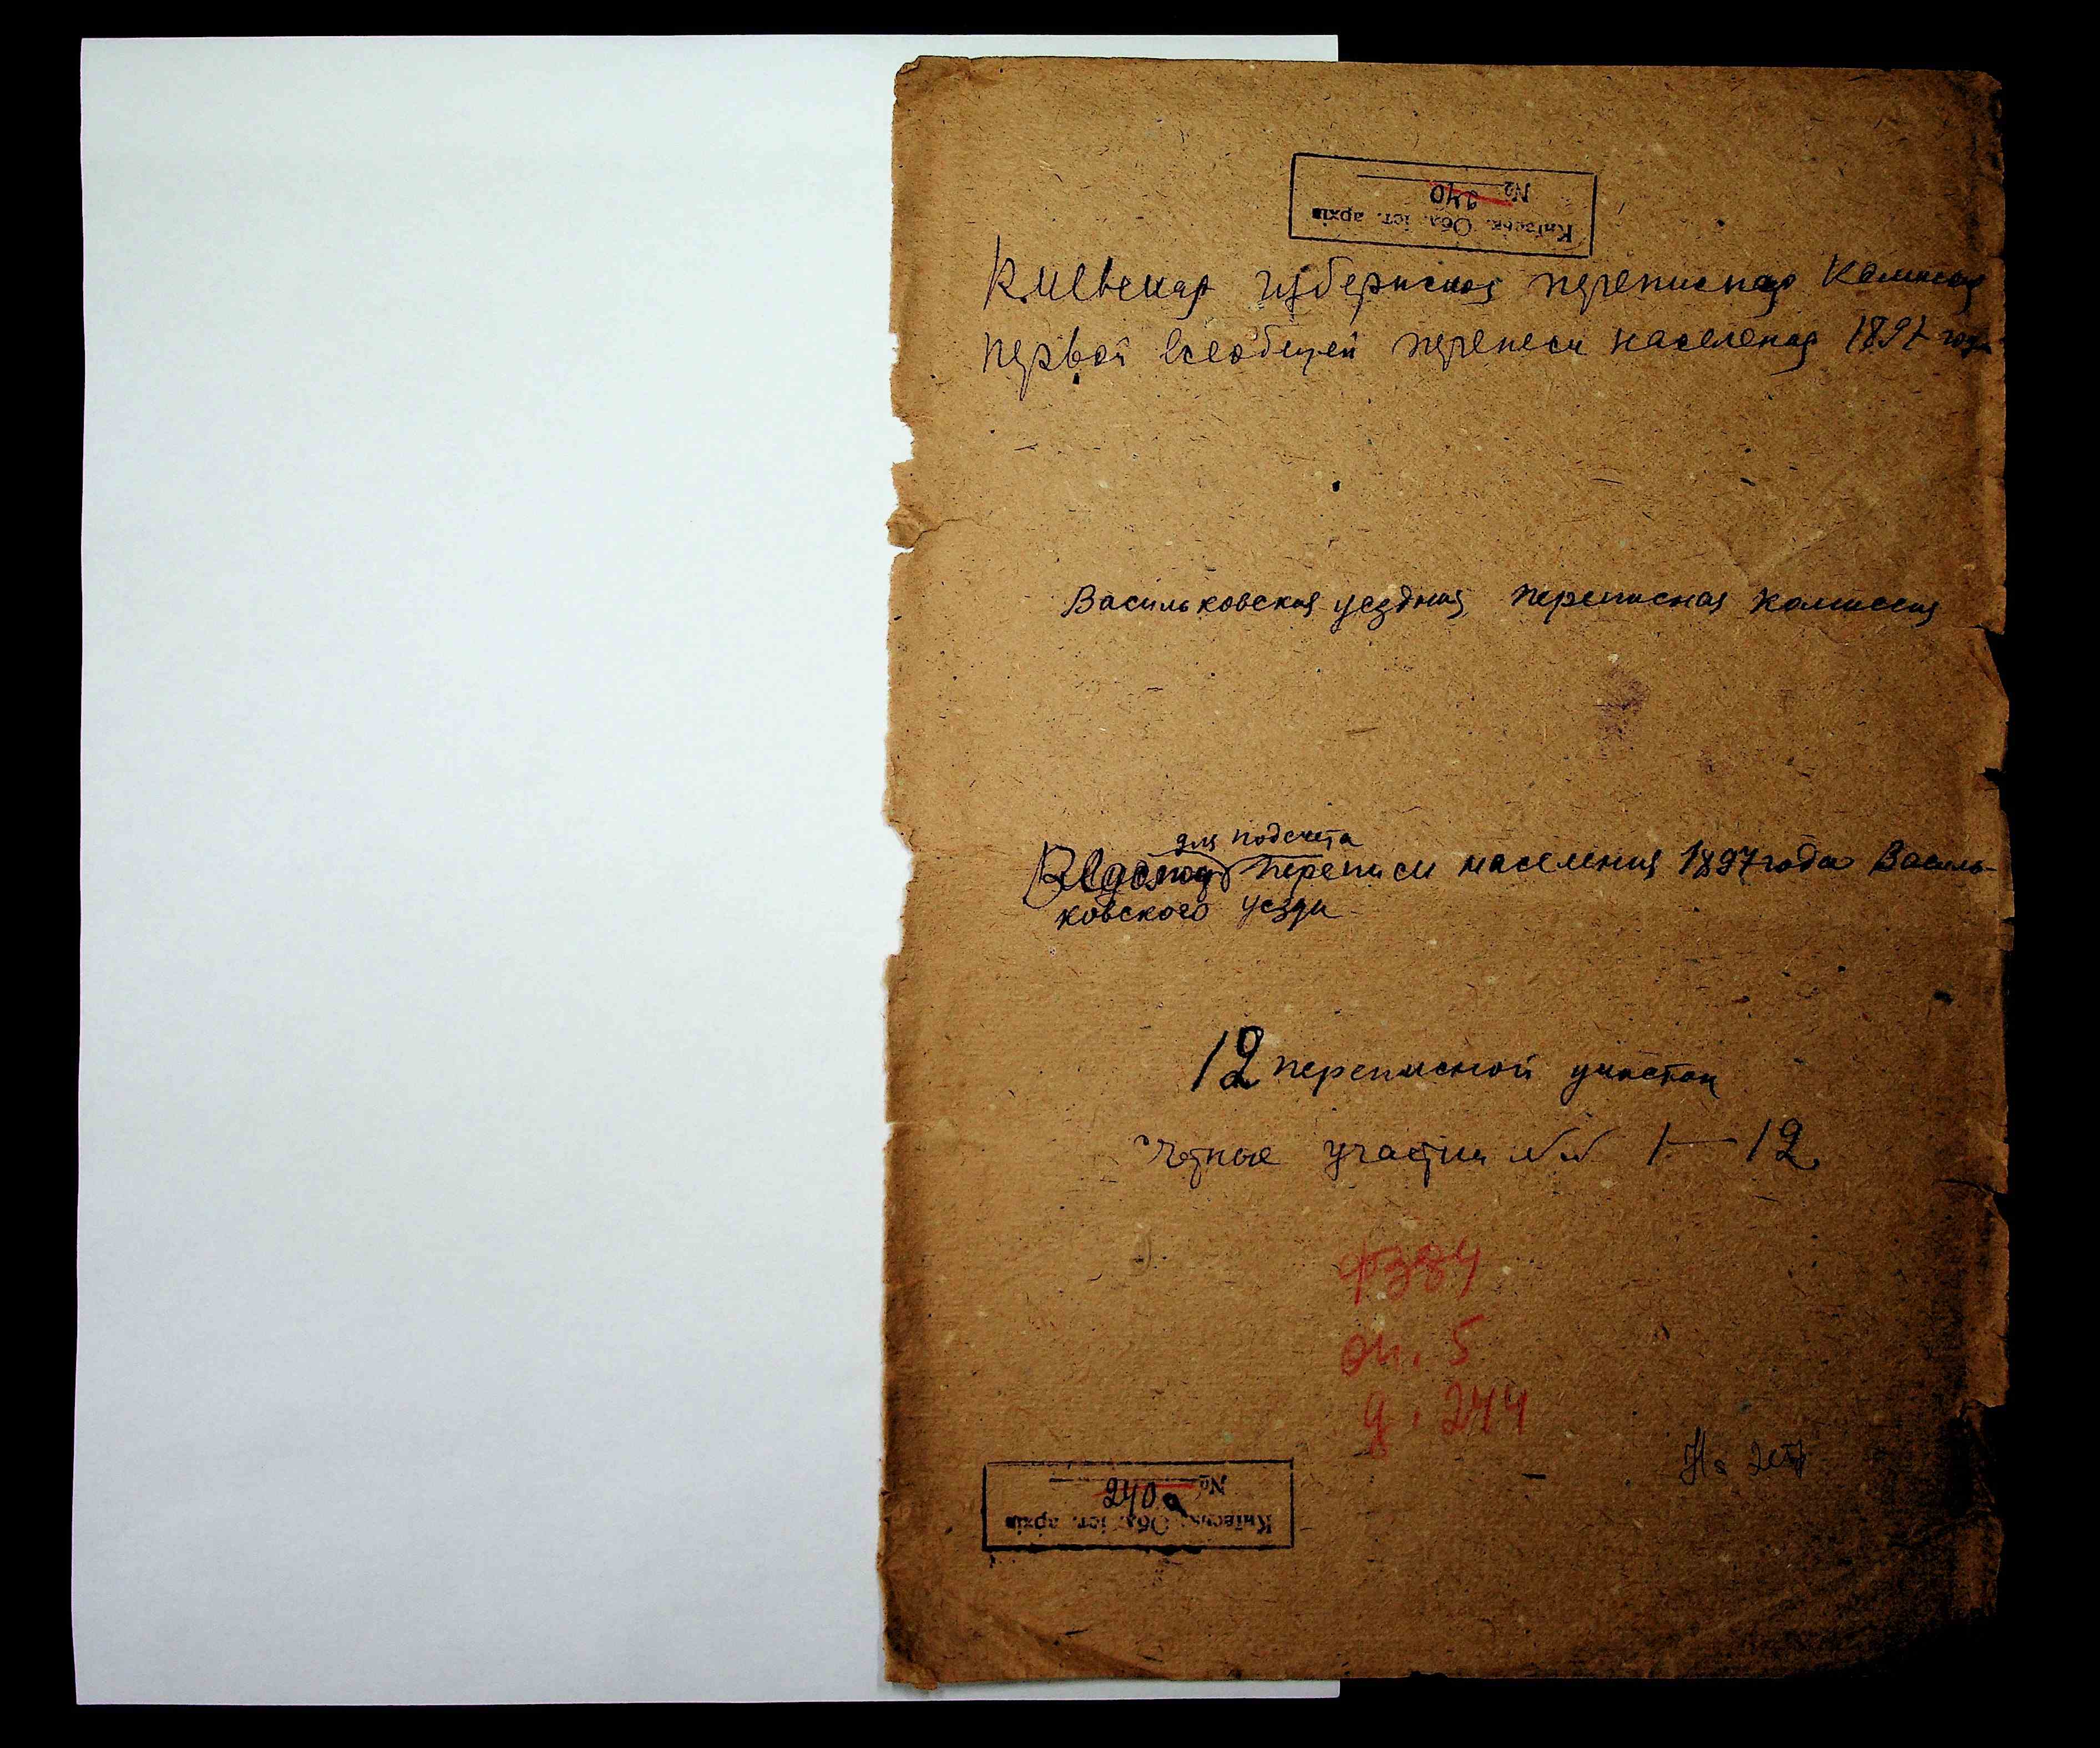 Київськ. Обл. іст. архів
№ 240
Киевская губернская переписная комиссия
первой всеобщей переписи населения 1897 года
Васильковская уездная переписная комиссия
для подсчета
переписи населения 1897 года Василь-
ковского уезда
12 переписной участок
Счетные участки №№ 1 — 12
ф 384
оп. 5
д. 244
На
Київськ. Обл. іст. архів
№ 240 а